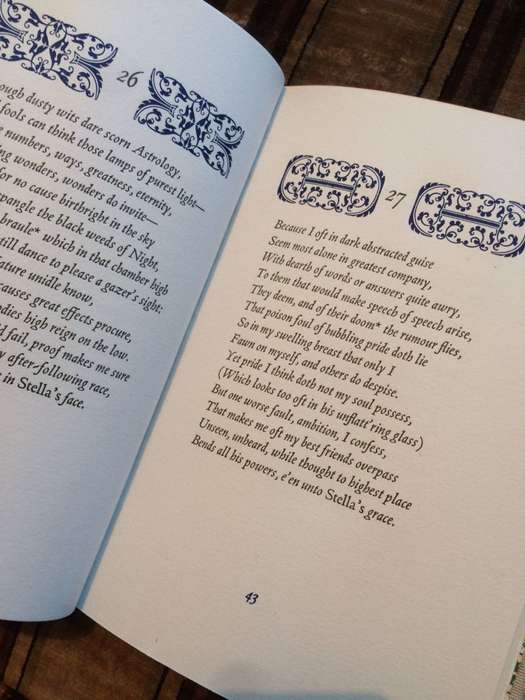 26
ough dusty wits dare scorn Astrology,
fools can think those lamps of purest light—
numbers, ways, greatness, eternity,
ng wonders, wonders do invite—
for no cause birthright in the sky
pangle the black weeds of Night,
braule* which in that chamber high
still dance to please a gazer's sight:
ature unidle know,
causes great effects procure,
odies high reign on the low.
d fail, proof makes me sure
y after-following race,
t in Stella's face.
27
Because I oft in dark abstracted guise
Seem most alone in greatest company,
With dearth of words or answers quite awry,
To them that would make speech of speech arise,
They deem, and of their doom* the rumour flies,
That poison foul of bubbling pride doth lie
So in my swelling breast that only I
Fawn on myself, and others do despise.
Yet pride I think doth not my soul possess,
(Which looks too oft in his unflatt'ring glass)
But one worse fault, ambition, I confess,
That makes me oft my best friends overpass
Unseen, unheard, while thought to highest place
Bends all his powers, e'en unto Stella's grace.
43